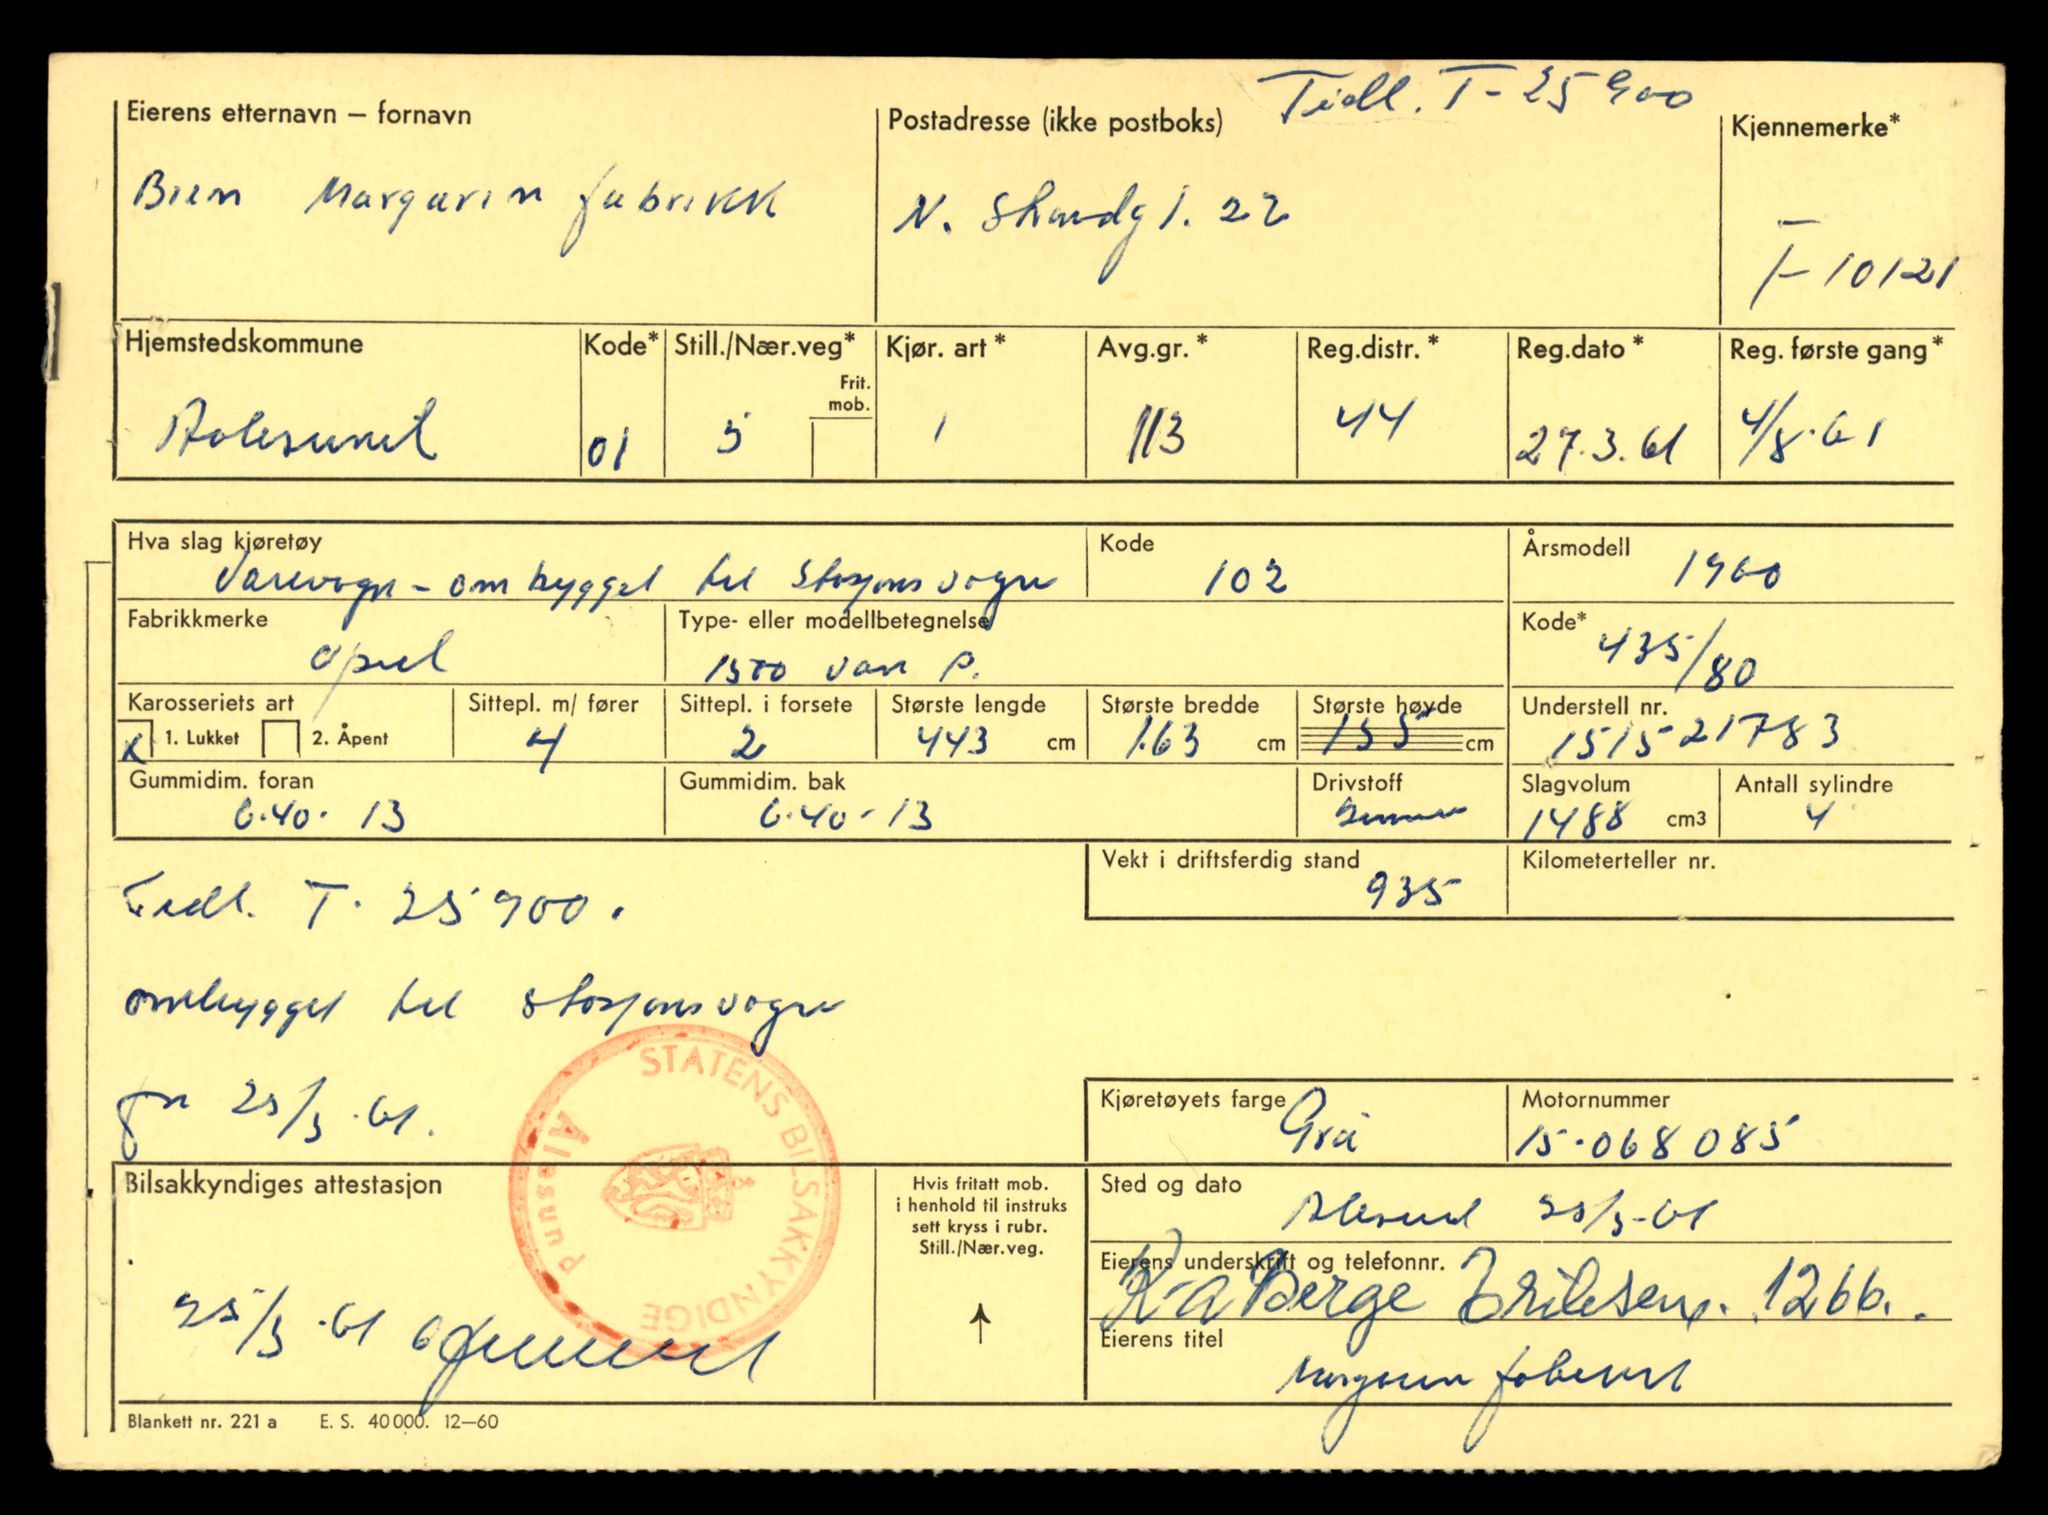 Tidl. T-25900
Eierens etternavn – fornavn
Postadresse (ikke postboks)
Kjennemerke*
Bien Margarin fabrikk
N. Strandgt. 22
T-10121
Hjemstedskommune
Kode*
Still./Nær.veg*
Frit. mob.
Kjør. art*
Avg.gr.*
Reg.distr.*
Reg.dato*
Reg. første gang*
Aalesund
01
5
1
113
44
27.3.61
4/8-61
Hva slag kjøretøy
Kode
Årsmodell
Varevogn - ombygget til Stasjonsvogn
102
1960
Fabrikkmerke
Type- eller modellbetegnelse
Kode*
Opel
1500 van P.
435/80
Karosseriets art
Sittepl. m/ fører
Sittepl. i forsete
Største lengde
Største bredde
Største høyde
Understell nr.
x 1. Lukket
2. Åpent
4
2
443 cm
163 cm
155 cm
151521783
Gummidim. foran
Gummidim. bak
Drivstoff
Slagvolum
Antall sylindre
6.40-13
6.40-13
1488 cm3
4
Vekt i driftsferdig stand
Kilometerteller nr.
935
Tidl. T-25900.
ombygget til stasjonsvogn
25/3-61.
Kjøretøyets farge
Motornummer
Grå
15-068085
STATENS BILSAKKYNDIGE
Ålesund
Bilsakkyndiges attestasjon
Hvis fritatt mob.
i henhold til instruks
sett kryss i rubr.
Still./Nær.veg.
Sted og dato
Ålesund 25/3-61
Eierens underskrift og telefonnr.
Berge Eriksen. 1266.
25/3-61
Eierens titel
Margarin fabrikk
Blankett nr. 221 a E. S. 40000. 12—60